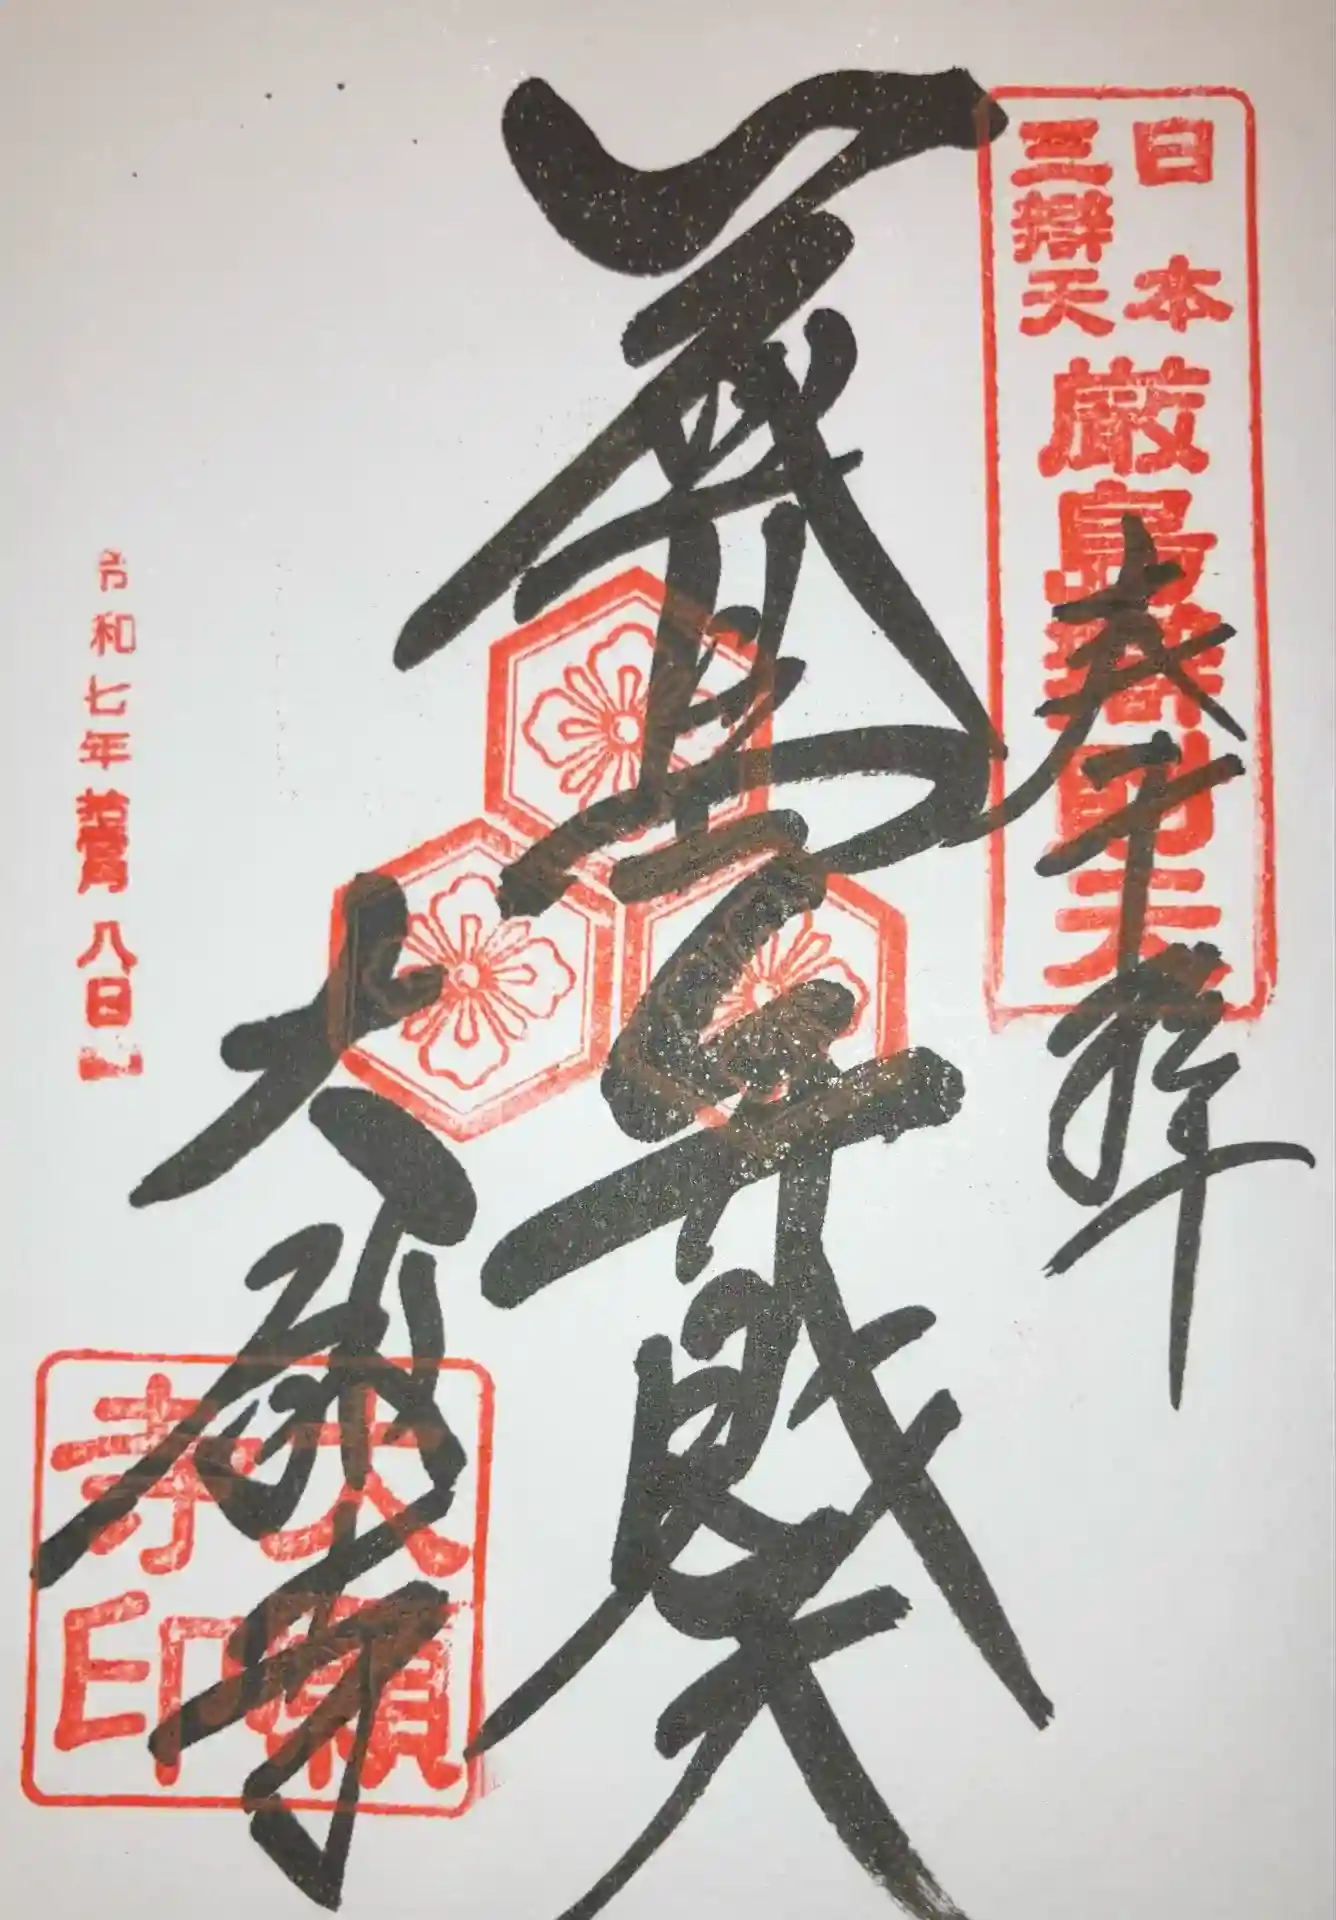 日本
三辯天
厳島辯財天
奉拝
厳島弁財天
大願寺
大願
寺印
令和七年 月八日